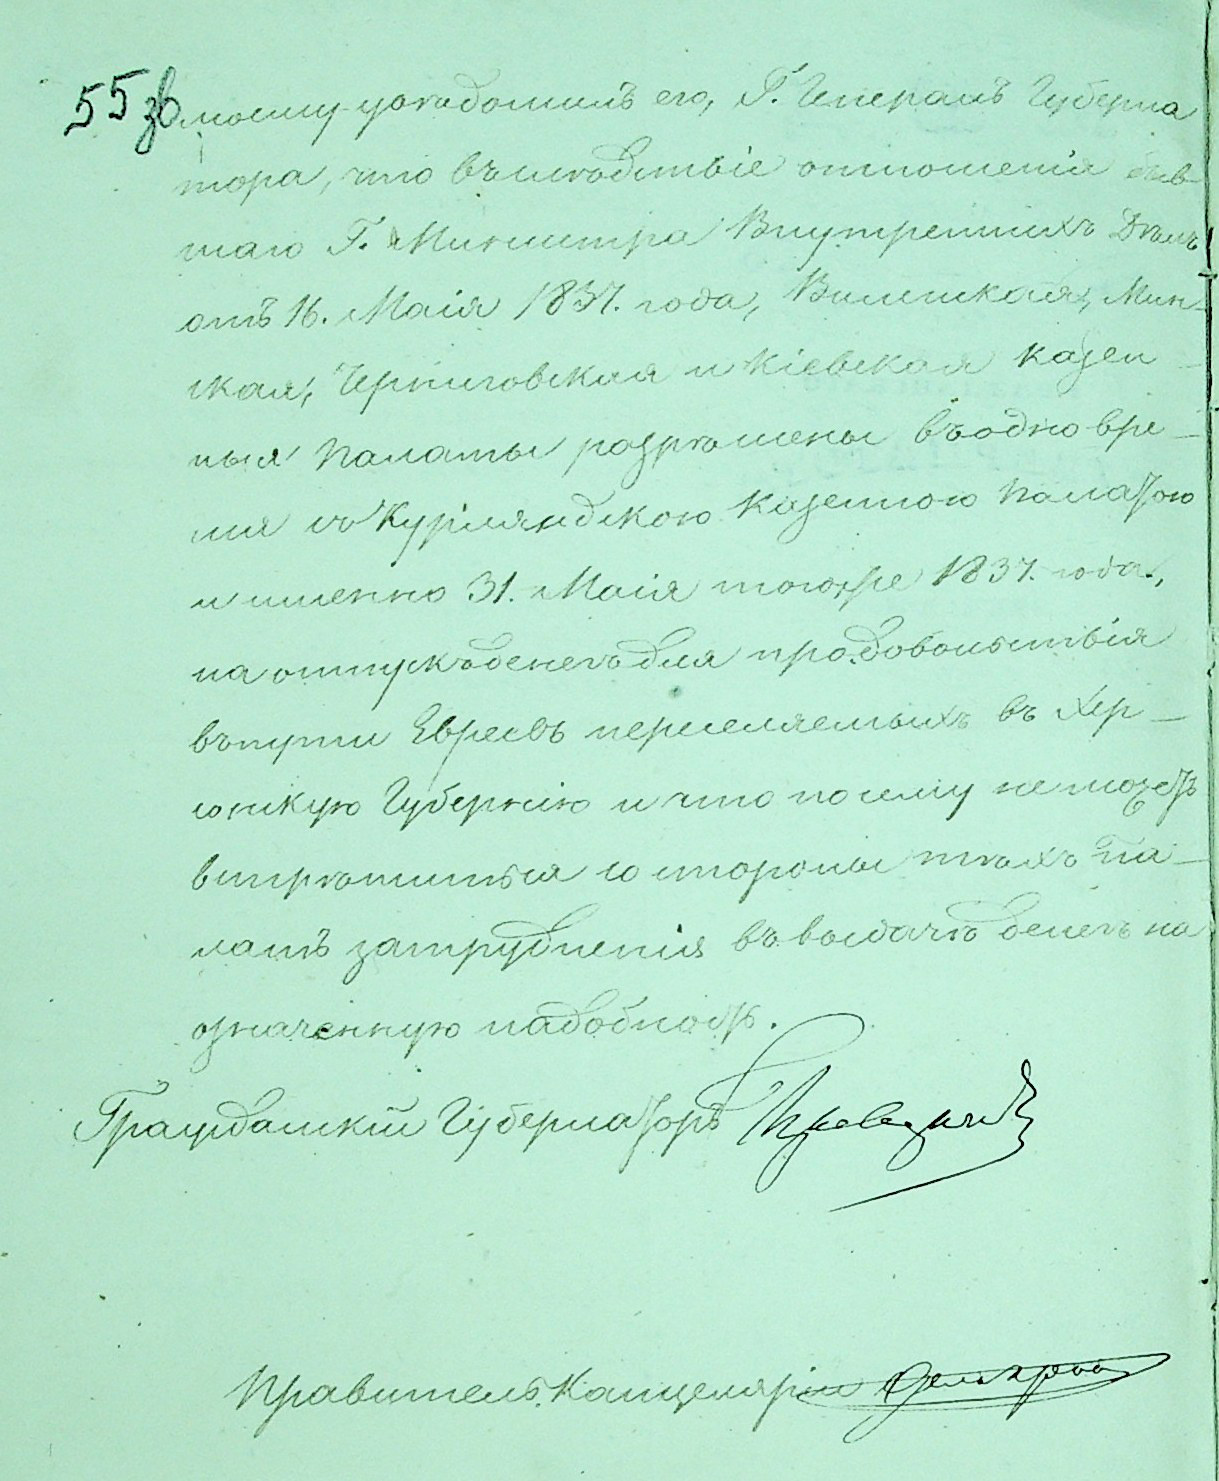 55 зв
моему уведомилъ его, Г. Генералъ Губерна
тора, что въ слѣдствіе отношенія быв
шаго Г. Министра Внутреннихъ Дѣлъ
отъ 16. Маія 1837. года, Виленская, Мин-
ская, Черниговская и Кіевская казен-
ныя Палаты разрѣшены въ одно вре-
мя съ Курляндскою Казенною Палатою
и именно 31. Маія того же 1837. года,
на отпускъ денегъ для продовольствія
въ пути Евреевъ переселяемыхъ въ Хер-
сонскую Губернію и что по сему не можетъ
встрѣтиться со стороны тѣхъ Па-
латъ затрудненія въ выдачѣ денегъ на
означенную надобность.
Гражданскій Губернаторъ
Правитель Канцеляріи